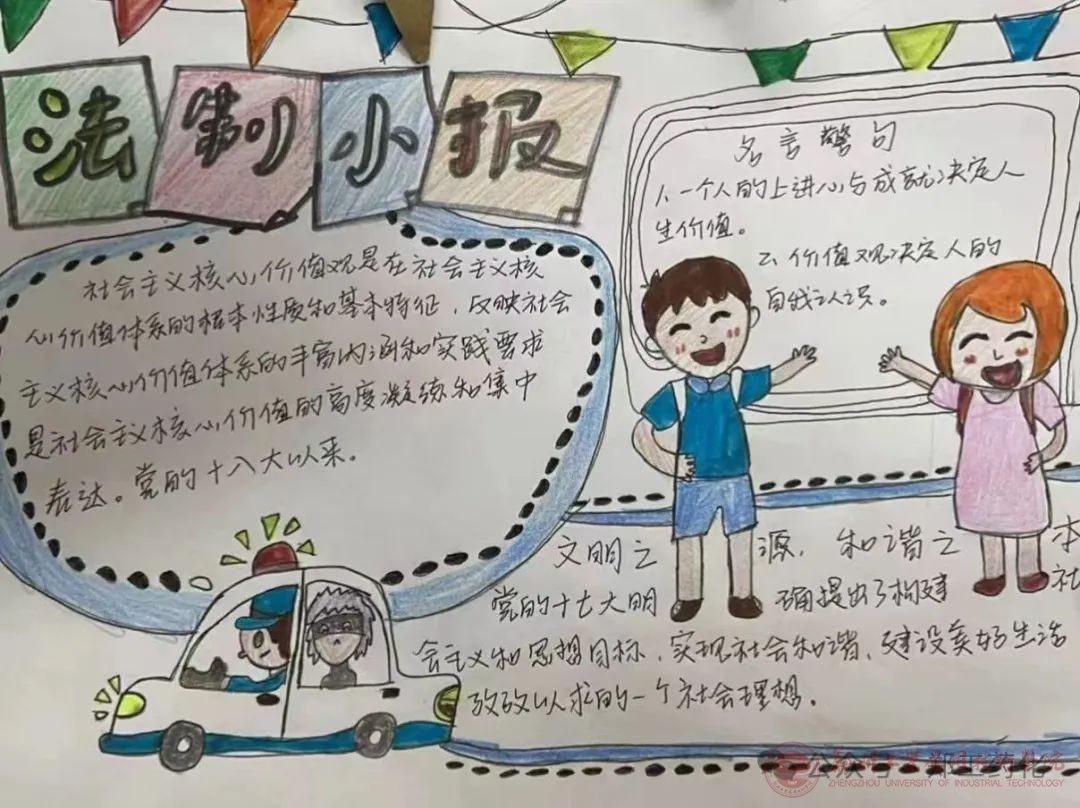 法制小报
社会主义核心价值观是在社会主义核
心价值体系的根本性质和基本特征，反映社会
主义核心价值体系的丰富内涵和实践要求
是社会主义核心价值的高度凝练和集中
表达。党的十八大以来。
名言警句
1、一个人的上进心与成就决定人
生价值。
2、价值观决定人的
自我认识。
文明之源，和谐之本
党的十七大明确提出了构建社
会主义和思想目标，实现社会和谐、建设美好生活
孜孜以求的一个社会理想。
公众号
ZHENGZHOU UNIVERSITY OF INDUSTRIAL TECHNOLOGY